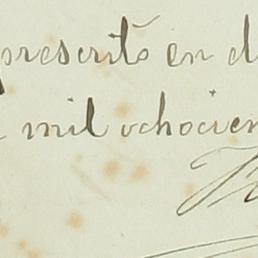 prescrito en d
mil ochocien